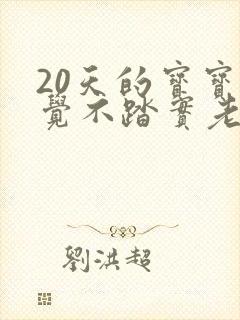 20天的寳寳
覺不踏實老
劉洪超